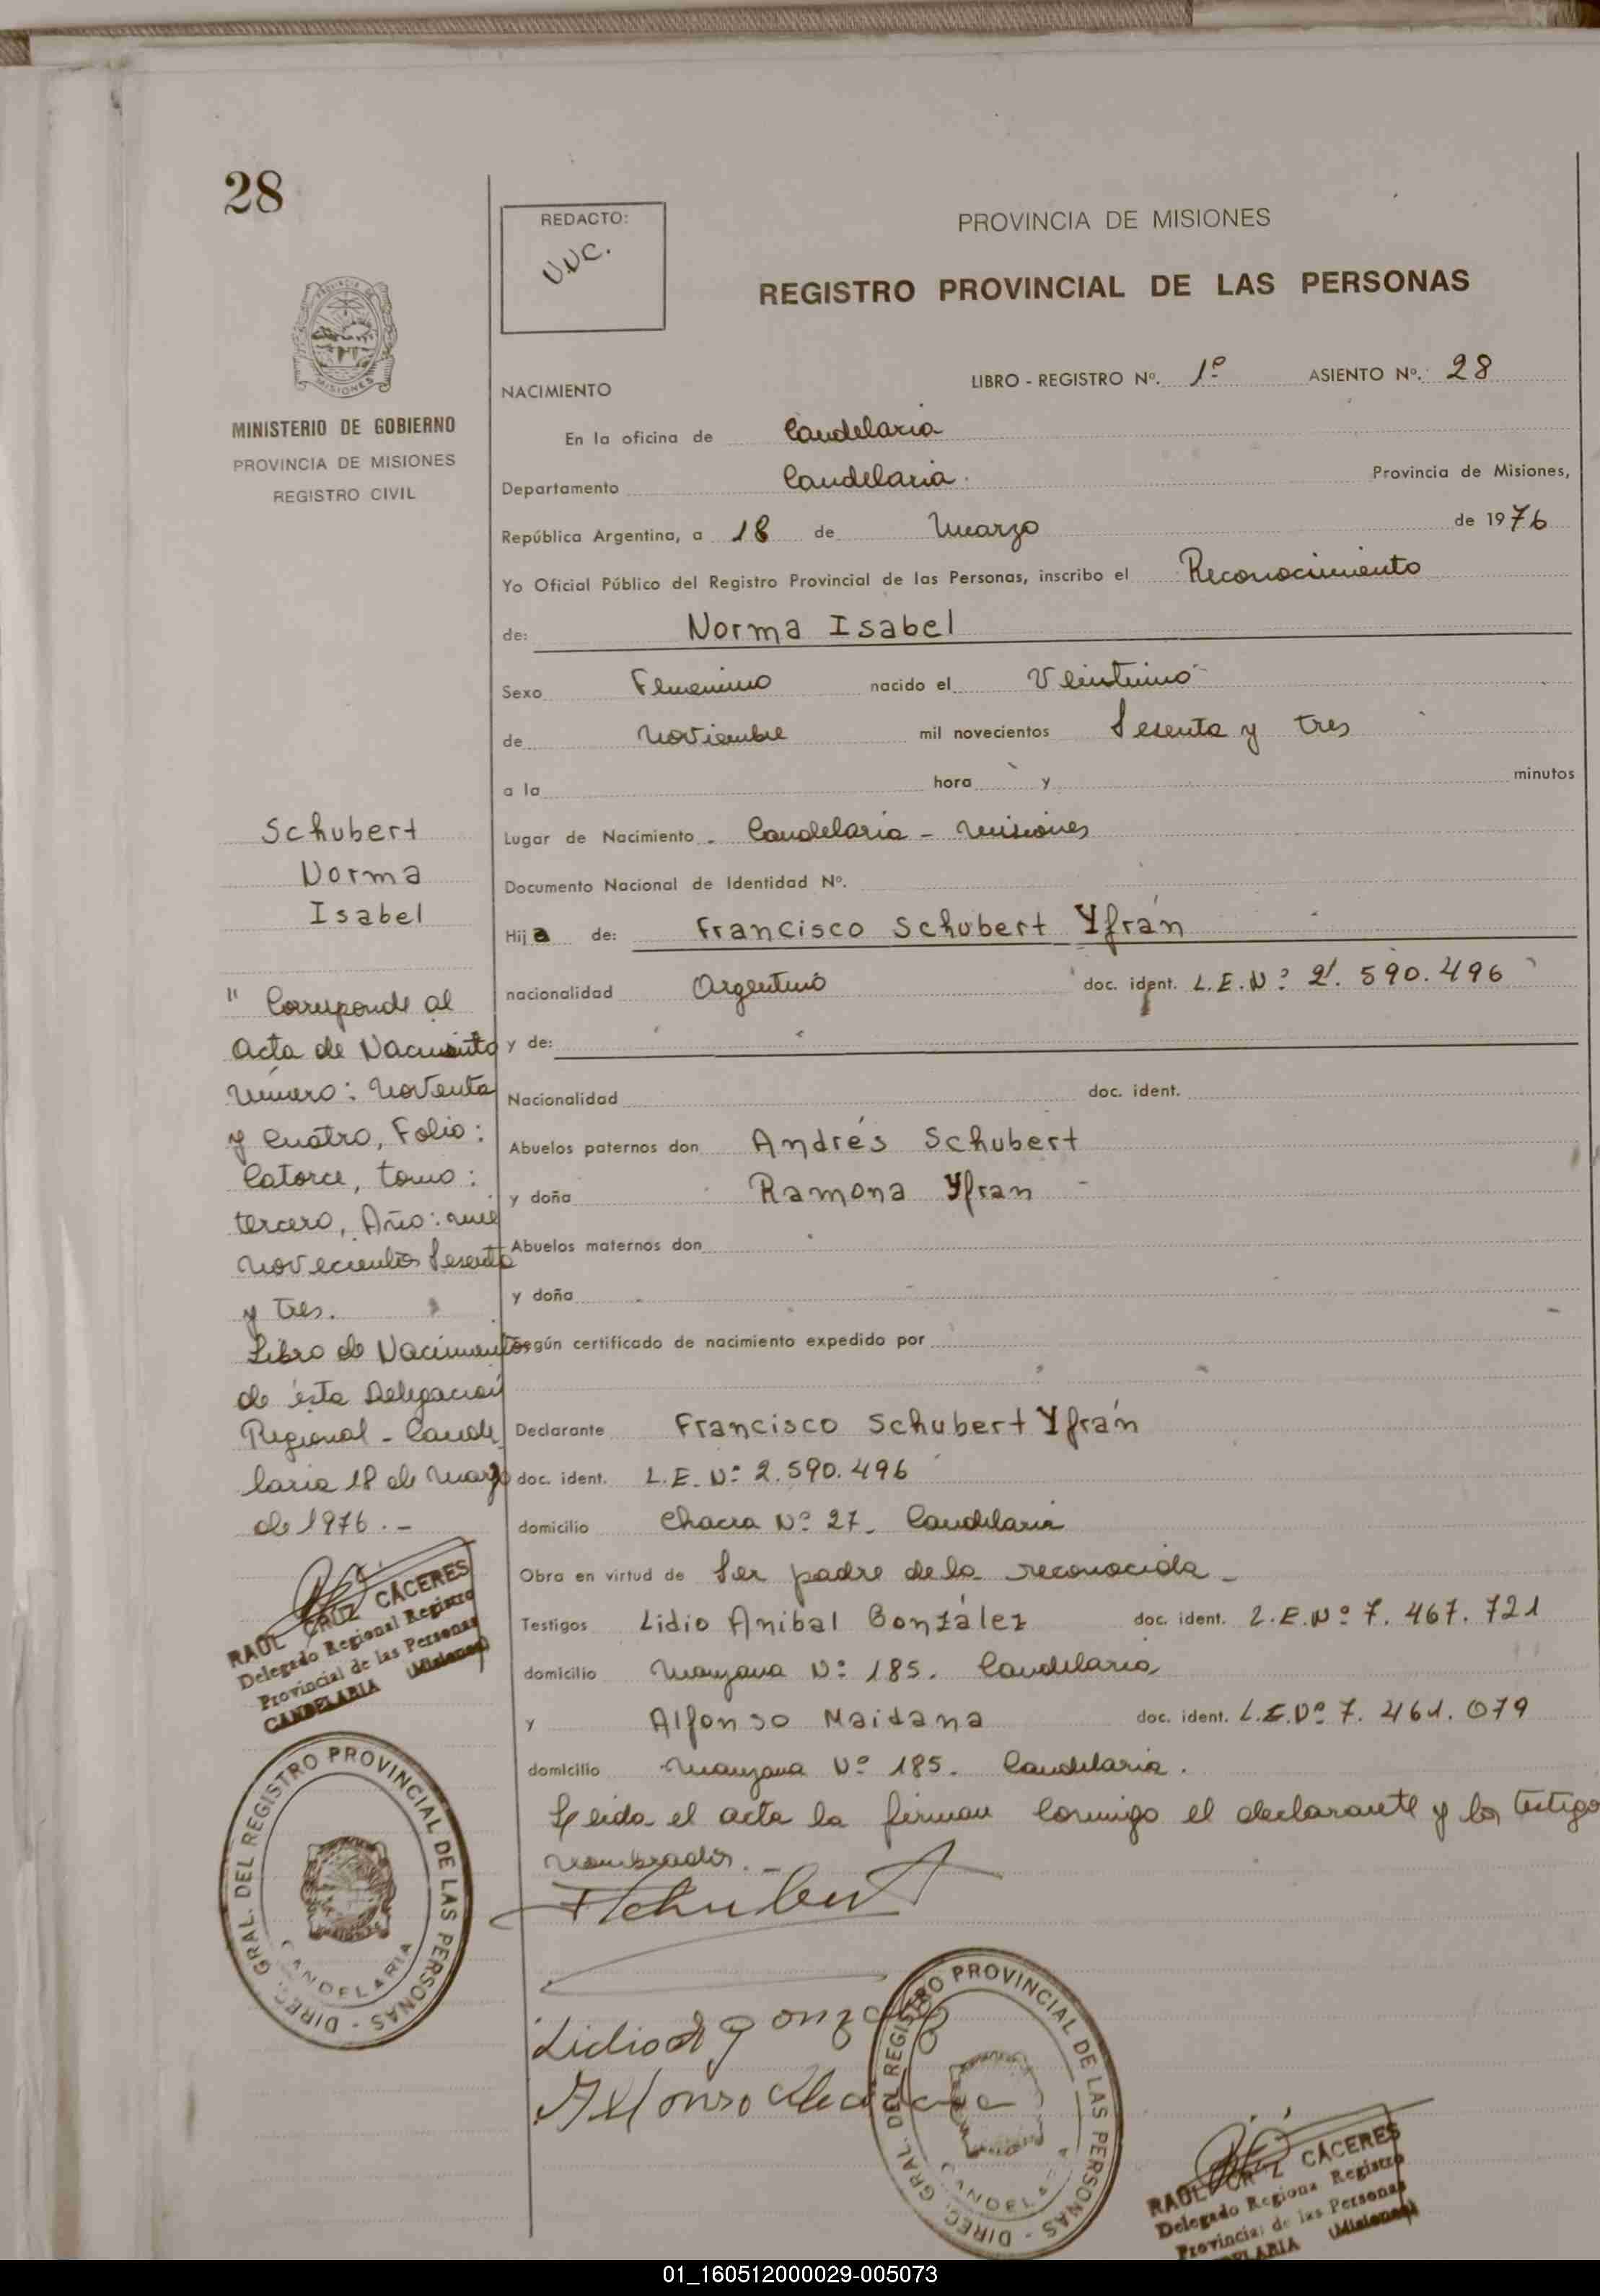 28
REDACTO:
U.N.C.
PROVINCIA DE MISIONES
REGISTRO PROVINCIAL DE LAS PERSONAS
MINISTERIO DE GOBIERNO
PROVINCIA DE MISIONES
REGISTRO CIVIL
NACIMIENTO
LIBRO - REGISTRO Nº. 1º ASIENTO Nº. 28
En la oficina de Candelaria
Departamento Candelaria. Provincia de Misiones,
República Argentina, a 18 de Marzo de 1976
Yo Oficial Público del Registro Provincial de las Personas, inscribo el Reconocimiento
de: Norma Isabel
Sexo Femenino nacido el Veintiuno
de Noviembre mil novecientos Sesenta y tres
a la hora y minutos
Lugar de Nacimiento - Candelaria - Misiones
Documento Nacional de Identidad Nº.
Hija de: Francisco Schubert Yfrán
nacionalidad Argentino doc. ident. L.E.Nº 2.590.496
y de:
Nacionalidad doc. ident.
Abuelos paternos don Andrés Schubert
y doña Ramona Yfran -
Abuelos maternos don
y doña
según certificado de nacimiento expedido por
Declarante Francisco Schubert Yfrán
doc. ident. L.E.Nº 2.590.496
domicilio Chacra Nº 27. Candelaria
Obra en virtud de Ser padre de la reconocida -
Testigos Lidio Anibal González doc. ident. L.E.Nº 7.467.721
domicilio Manzana Nº 185. Candelaria
y Alfonso Maidana doc. ident. L.E.Nº 7.461.079
domicilio Manzana Nº 185. Candelaria.
Leida el acta la firman conmigo el declarante y los testigos
nombrados. -
FSchubert
Lidio A gonzalez
Alfonso Maidana
Schubert
Norma
Isabel
" Corresponde al
Acta de Nacimiento
Número: Noventa
y Cuatro, Folio:
Catorce, tomo:
tercero, Año: mil
novecientos Sesenta
y tres.
Libro de Nacimientos
de ésta Delegación
Regional - Cande
laria 18 de Marzo
de 1976. -
RAUL CRUZ CÁCERES
Delegado Regional Registro
Provincial de las Personas
CANDELARIA (Misiones)
DIREC. GRAL. DEL REGISTRO PROVINCIAL DE LAS PERSONAS -
CANDELARIA
DIREC. GRAL. DEL REGISTRO PROVINCIAL DE LAS PERSONAS -
CANDELARIA
RAUL CRUZ CÁCERES
Delegado Regional Registro
Provincial de las Personas
CANDELARIA (Misiones)
01_160512000029-005073